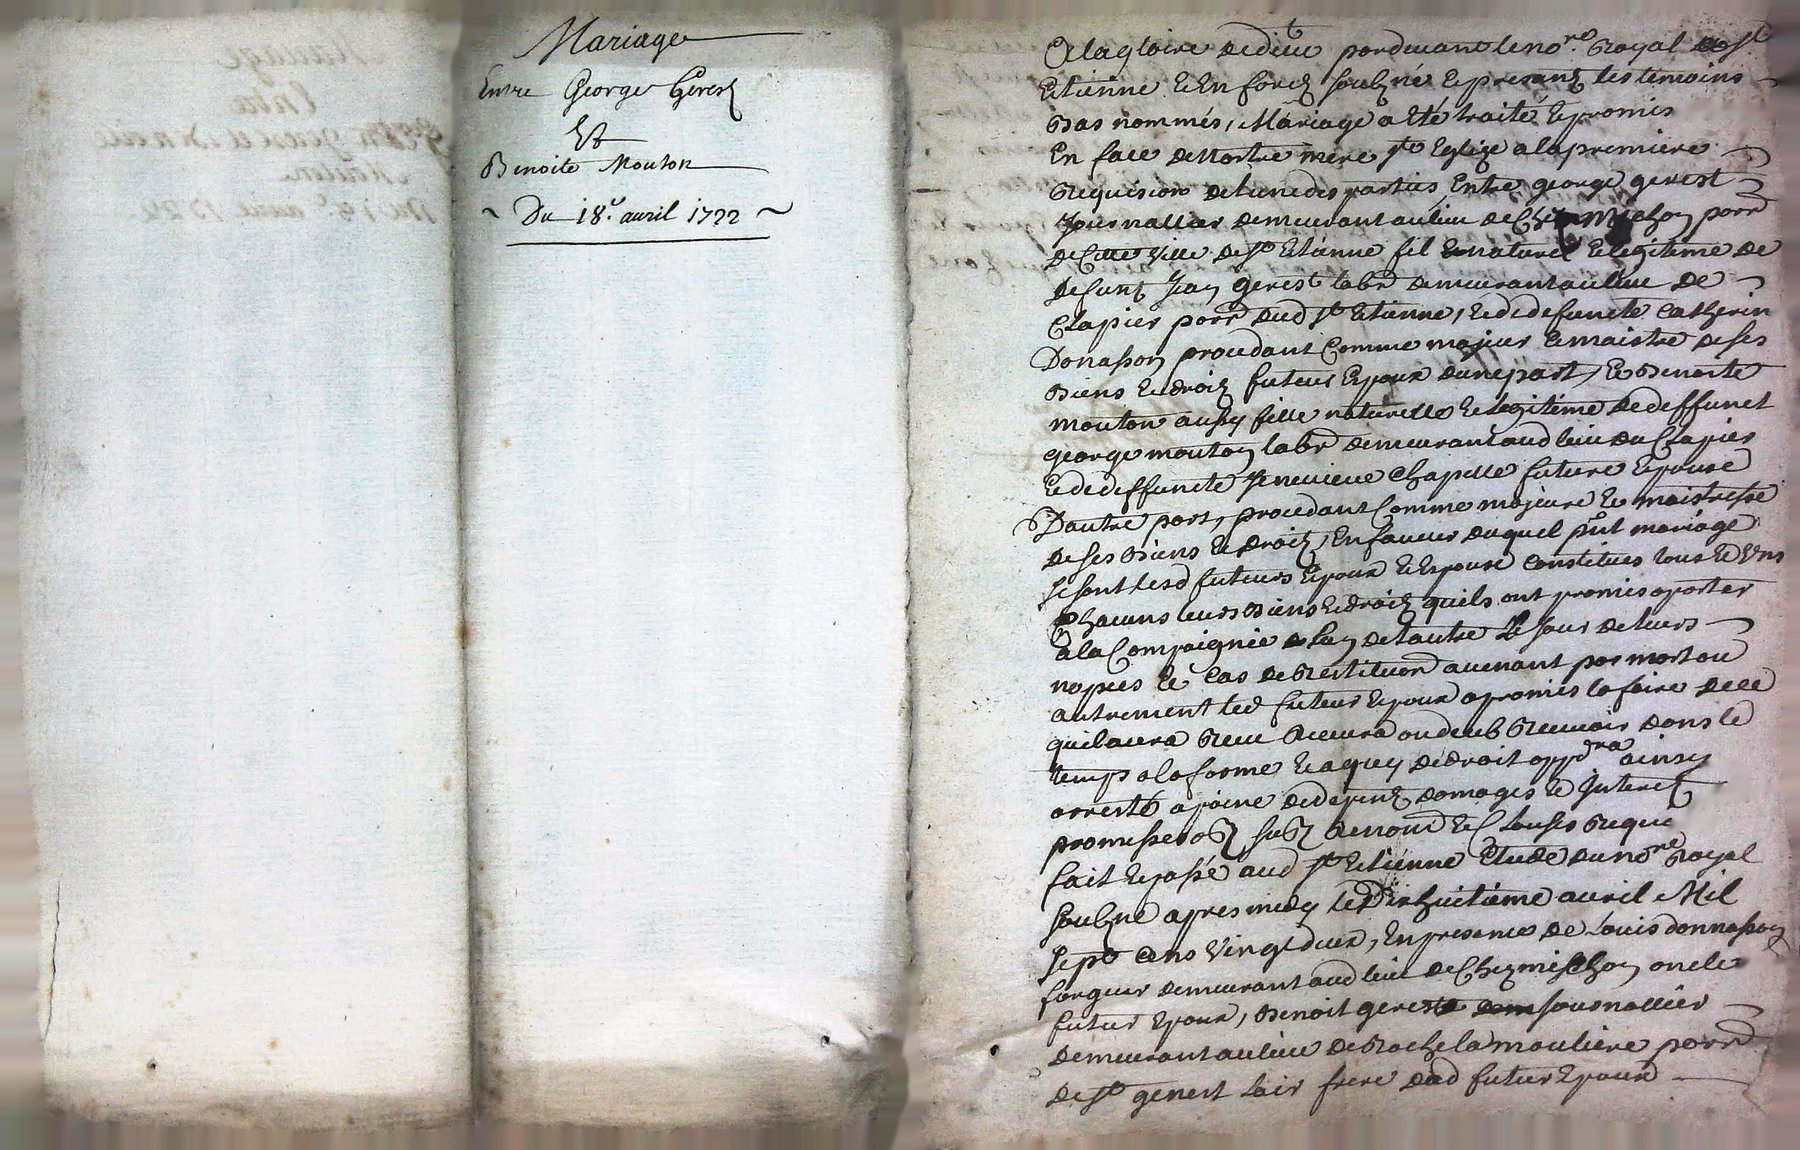 Mariage
Entre George Gerest
Et
Benoite Mouton
Du 18.e avril 1722
A la gloire de dieu pardevant le nore. Royal de st
Etienne & En forez soubzné & presentz les temoins
Bas nommés, Mariage a Eté traité & promis
En face de Nostre mere ste Eglize a la premiere
Requision de lune des parties Entre george gerest
Journallier demeurant au lieu de Chez Michon parr
de Cette Ville de st Etienne fil naturel & legitime de
defunt Jean gerest labr demeurant au lieu de
Clapier parr dud st Etienne, & de defuncte Catherin
Donasson procedant Comme majeur & maistre de ses
Biens & droitz futeur Epoux dune part, & Benoite
mouton aussy fille naturelle & legitime de deffunct
george mouton labr demeurant aud lieu du Clapier
& de deffuncte Jeneuieue Chapelle future Epouse
D'autre part, procedant Comme majeure & maistresse
de ses Biens & droitz, En faueur duquel pnt mariage
se sont lesd futeurs Epoux & Epouse constitues tous & Uns
Chacuns leurs Biens & droitz quils ont promis aporter
a la Compaignie de lun de lautre le Jour de leurs
nopces & cas de Restitution auenant par mort ou
autrement led futeur Epoux a promis la faire de ce
quil aura Receu ou deub Receuoir dans le
temps a la forme & a quy de droit appdra ainsy
arresté a paine de depentz domages & Interetz
promisse oblz subz Renond & Clauses Reque
fait & passé aud st Etienne Etude du nore Royal
soubzné apres midy le Dixhuitième auril Mil
sept cens Vingt deux, En presence de Louis donnasson
forgeur demeurant aud lieu de Chez michon oncle
futur Epoux, Benoit gereste Journallier
demeurant au lieu de Roche la mouliere parr
de st genest Lair frere dud futur Epoux